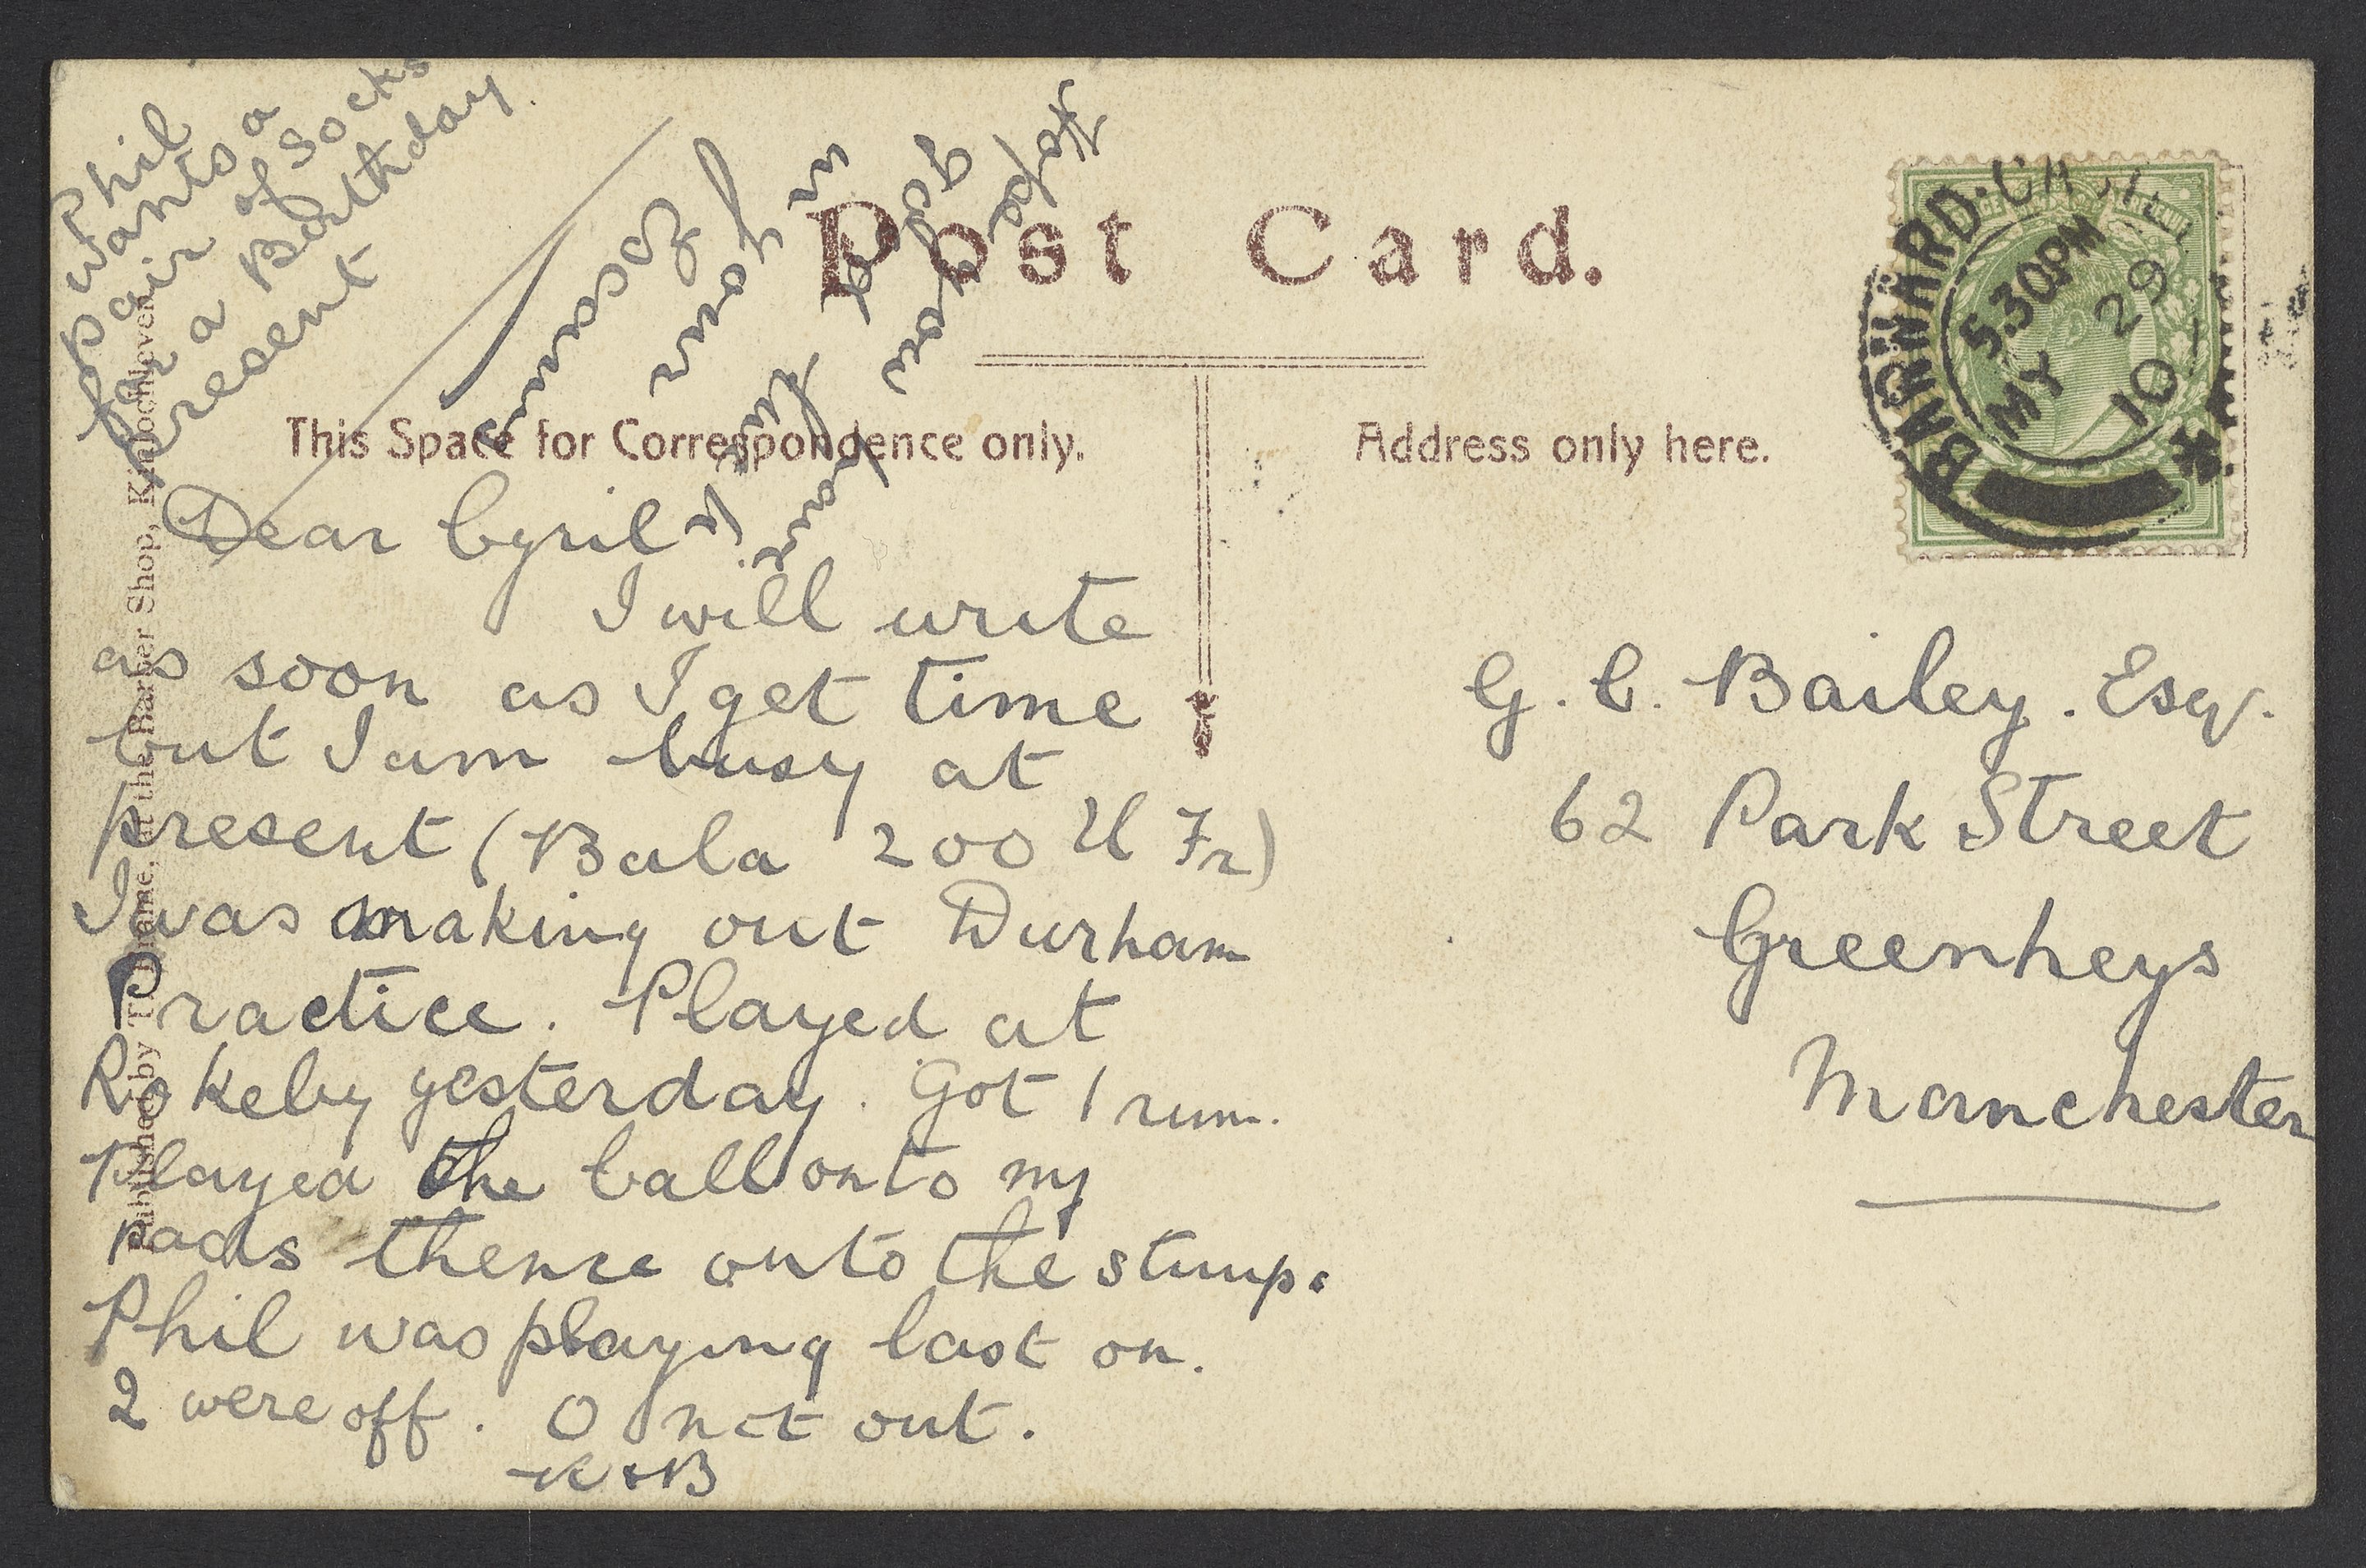 Phil
wants a
pair of socks
for a Birthday
present
Hope
you have
good
luck
in
your
Exam
Post Card.
This Space for Correspondence only.
Address only here.
BARNARD·CASTLE
5.30PM
MY 29
10
Dear Cyril
I will write
as soon as I get time
but I am busy at
present (Bala 200 U Fr)
I was making out Durham
Practice. Played at
Rokeby yesterday. Got 1 run.
Played the ball onto my
pads thence onto the stump.
Phil was playing last on.
2 were off. 0 not out.
G. C. Bailey. Esq.
62 Park Street
Greenheys
Manchester
Published by
at the Barber Shop, Kinlochleven